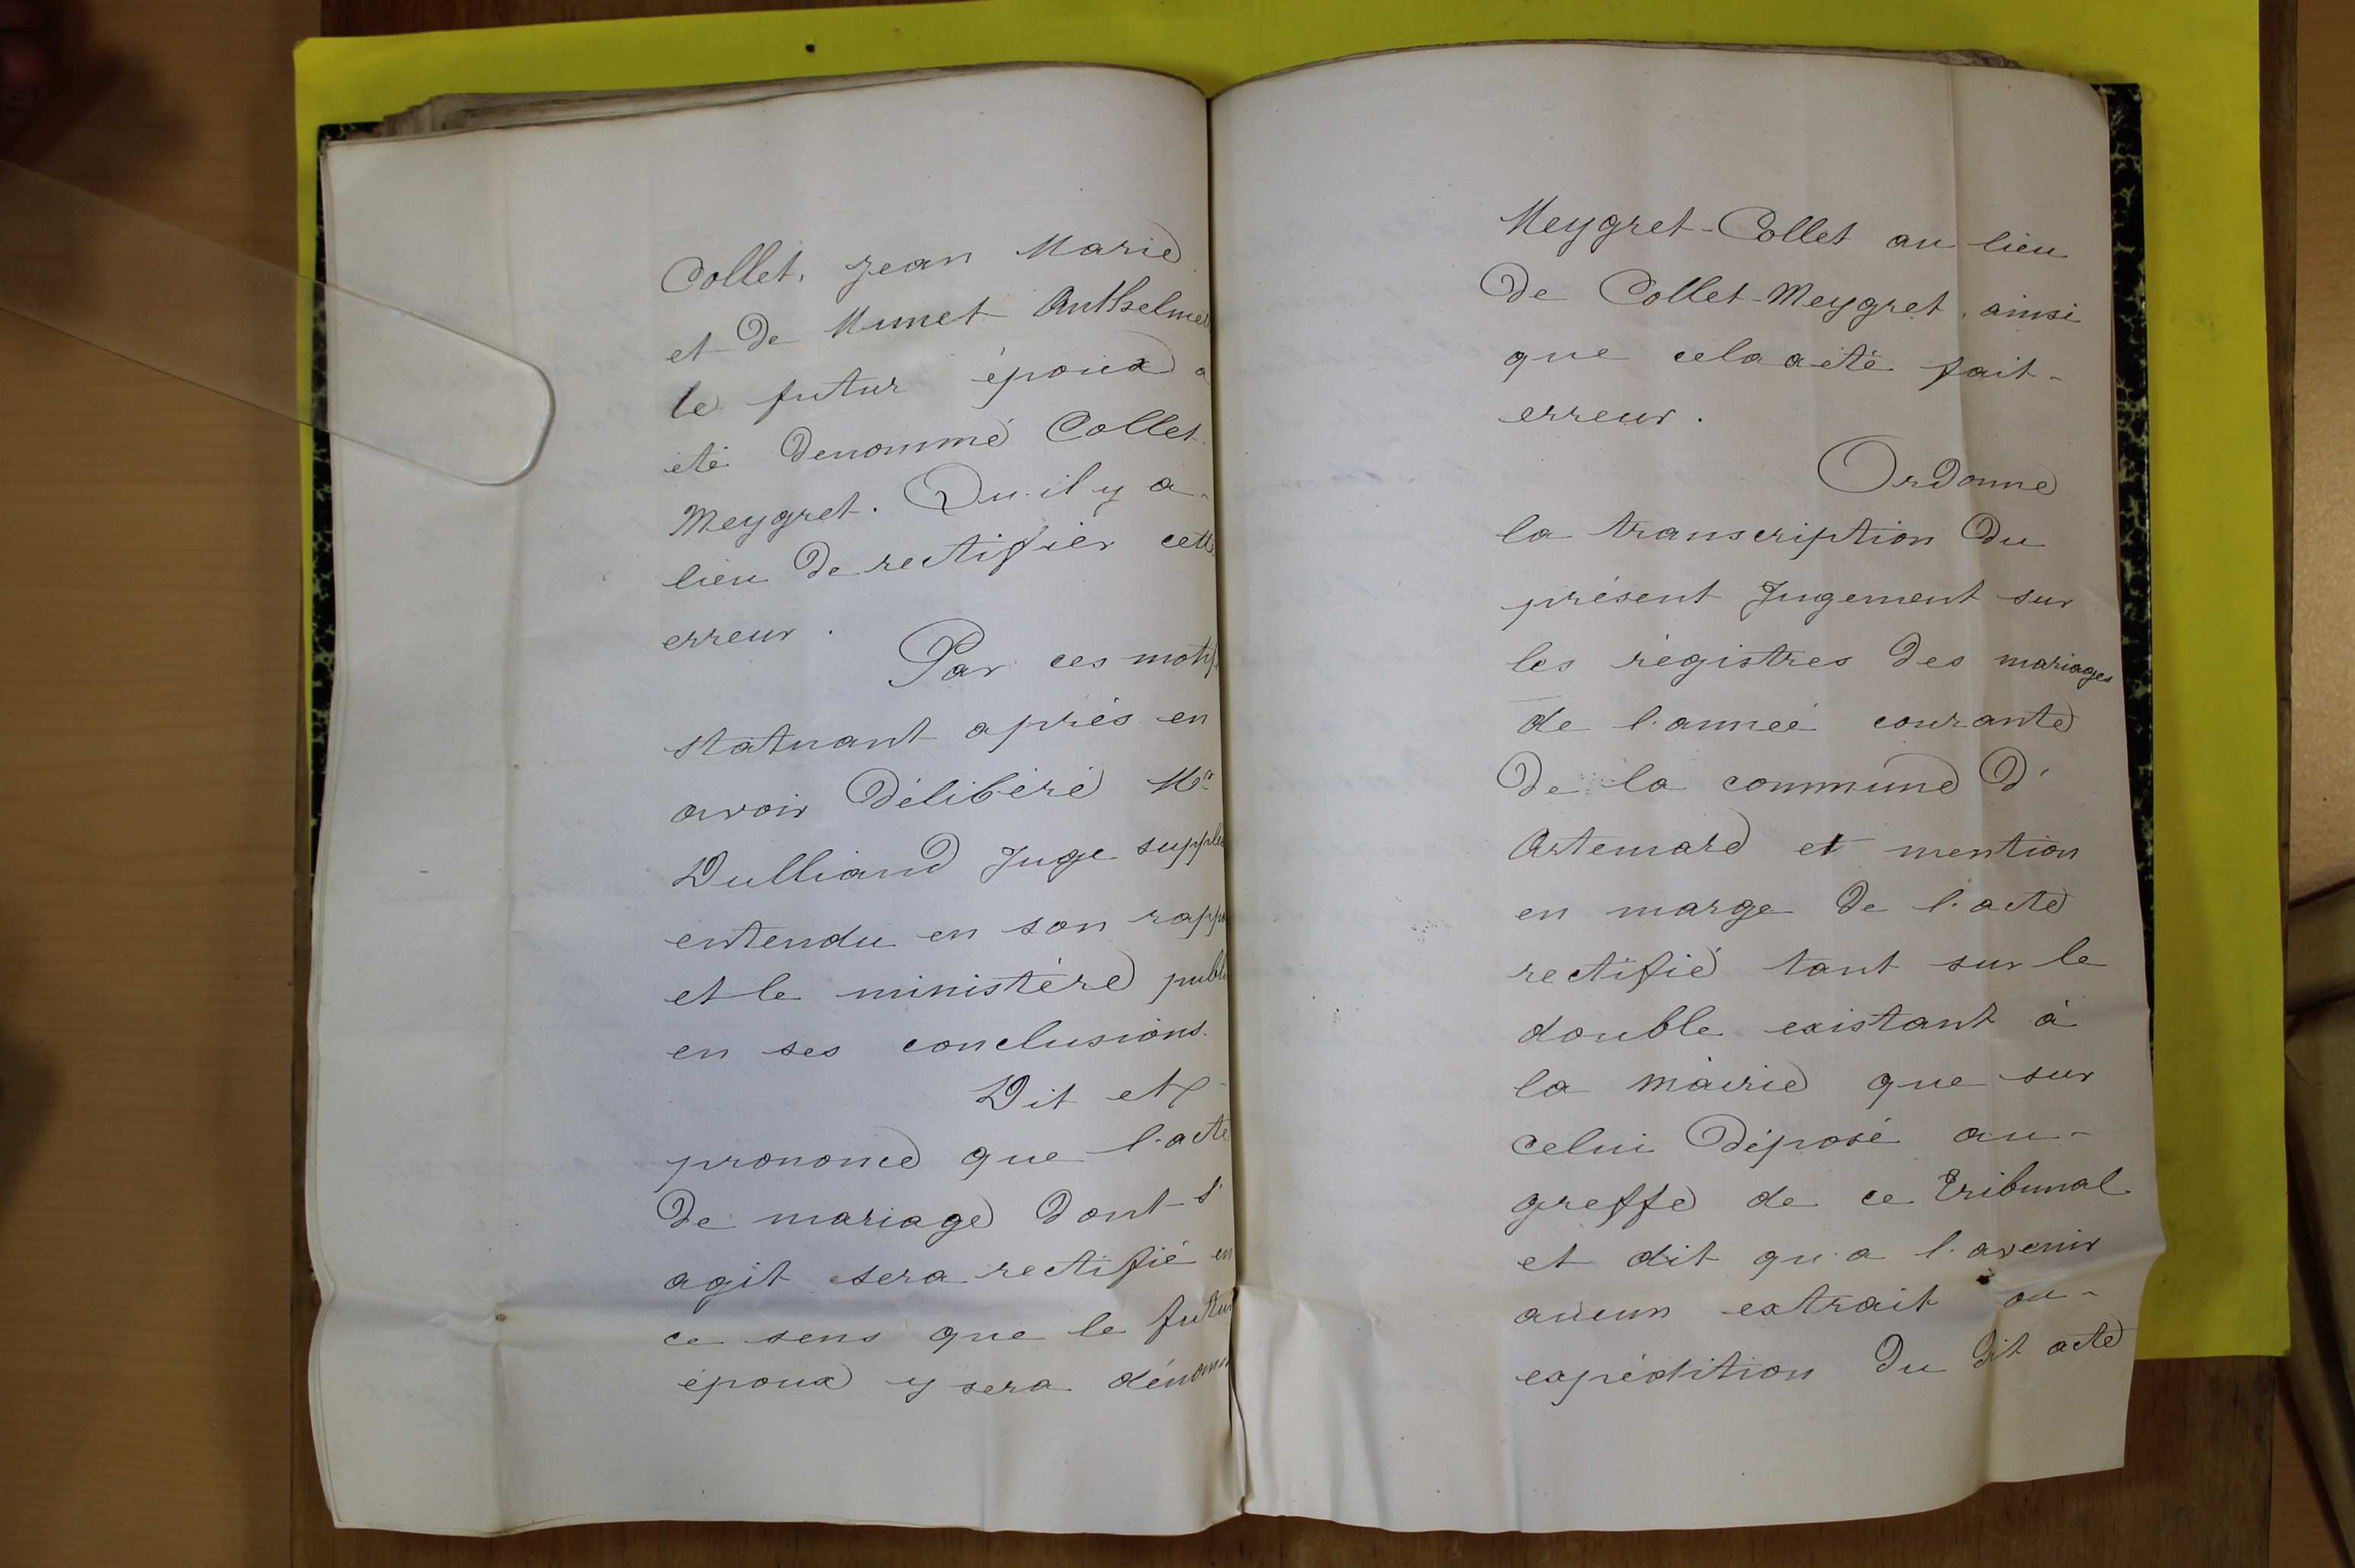 Collet, Jean Marie
et de Munet Anthelme
le futur époux a
été denommé Collet
Meygret. Qu'il y a
lieu de rectifier cett
erreur.
Par ces motifs
statuant après en
avoir délibéré Mr
Dulliand Juge supplé
entendu en son rapp
et le ministère publi
en ses conclusions.
Dit et
prononce que l'acte
de mariage dont s'
agit sera rectifié en
ce sens que le futur
époux y sera dénomm
Meygret-Collet au lieu
de Collet-Meygret, ainsi
que cela a été fait
erreur.
Ordonne
la transcription du
présent Jugement sur
les régistres des mariages
de l'année courante
de la commune d'
Artemard et mention
en marge de l'acte
rectifié tant sur le
double existant à
la mairie que sur
celui déposé au
greffe de ce Tribunal
et dit qu'a l'avenir
aucun extrait ou
expédition du dit acte